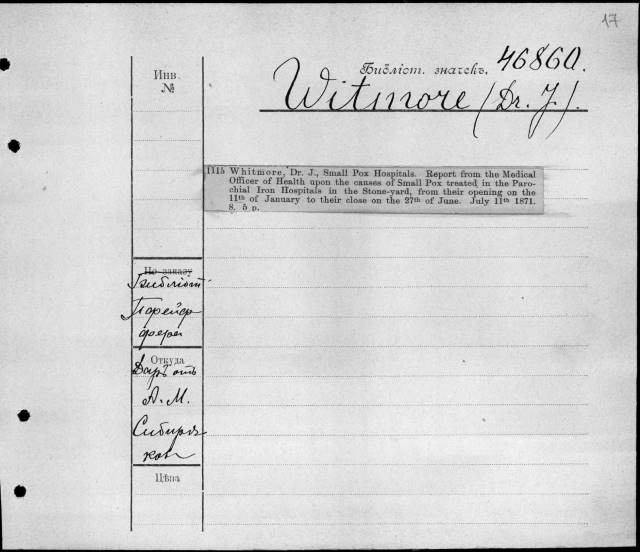 17
Инв.
№
Библіот. значекъ.
46860.
Witmore (Dr. J.).
1115 Whitmore, Dr. J., Small Pox Hospitals. Report from the Medical
Officer of Health upon the causes of Small Pox treated in the Paro-
chial Iron Hospitals in the Stone-yard, from their opening on the
11th of January to their close on the 27th of June. July 11th 1871.
8. 5 p.
По заказу
Библіот.
Порейер
фера
Откуда
Даръ отъ
А. М.
Сибиряк
Цѣна